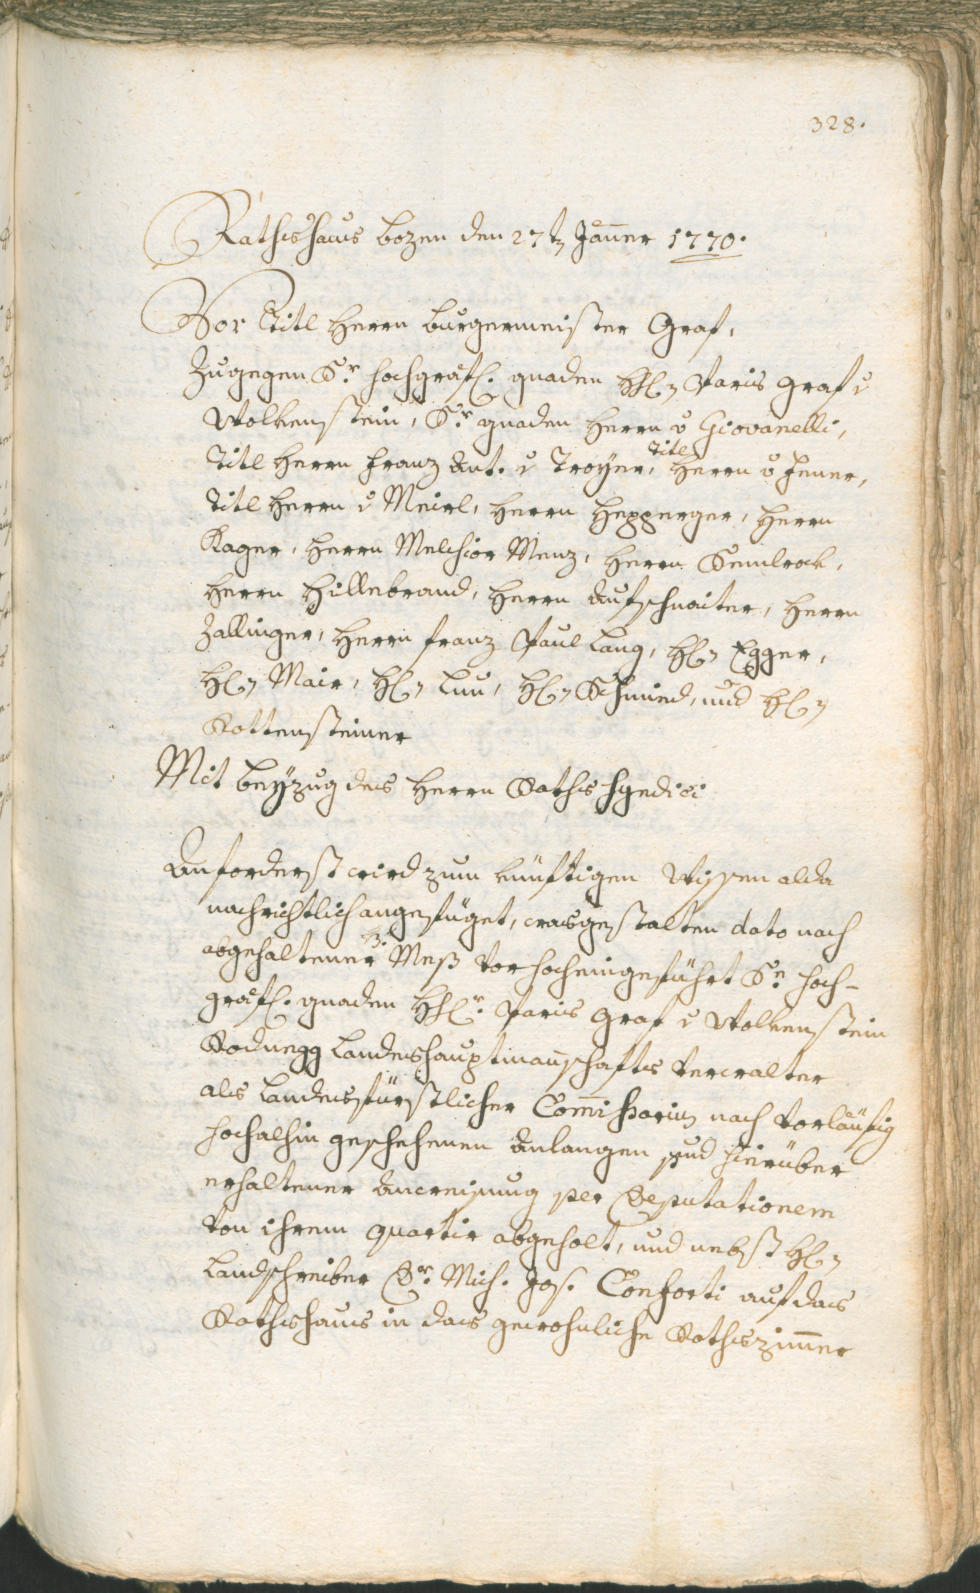 328.
Rathshaus Bozen den 27t Jäner 1770.
Vor Titl Herrn Burgermeister Graf,
Zugegen Sr. hochgräfl. gnaden Hhl. Paris Graf v
Wolkenstein, Sr. gnaden Herrn v Giovanelli,
Titl Herrn Franz Ant. v Troyer, Titl Herrn v Jener,
Titl Herrn v Meirl, Herrn Hepperger, Herrn
Kager, Herrn Melchior Menz, Herrn Kemlrock,
Herrn Hillebrand, Herrn Aufschnaiter, Herrn
Zallinger, Herrn Franz Paul Lang, Hl. Egger,
Hl. Mair, Hl. Luu, Hl. Schmied, und Hl.
Rottensteiner
Mit beyzug des Herrn Raths Syndici
Anforderst wird zum künftigen Wissen alda
nachrichtlich angefüget, wasgestalten dato nach
abgehaltener Meß vorhocheingeführt Sr. hoch-
gräfl. gnaden Hhl. Paris Graf v Wolkenstein
Rodnegg Landeshauptmanschafts Verwalter
als Landesfürstlicher Commissarius nach vorläufig
hochalhin geschehenen Anlangen und hierüber
erhaltener Anweisung per Deputationem
von ihrem quartir abgeholt, und nebst Hl.
Landschreiber Dr. Mich. Jos. Conforti auf das
Rathshaus in das gewohnliche Rathszimmer